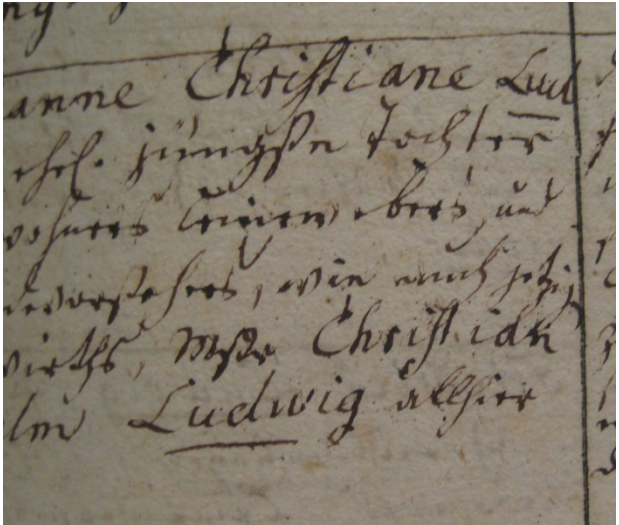 anne Christiane Lud
ehel. jüngste Tochter
wohners Leinewebers, und
devorstehers, wie auch jetzig
wirths, Mstr Christian
Ludwig allhier